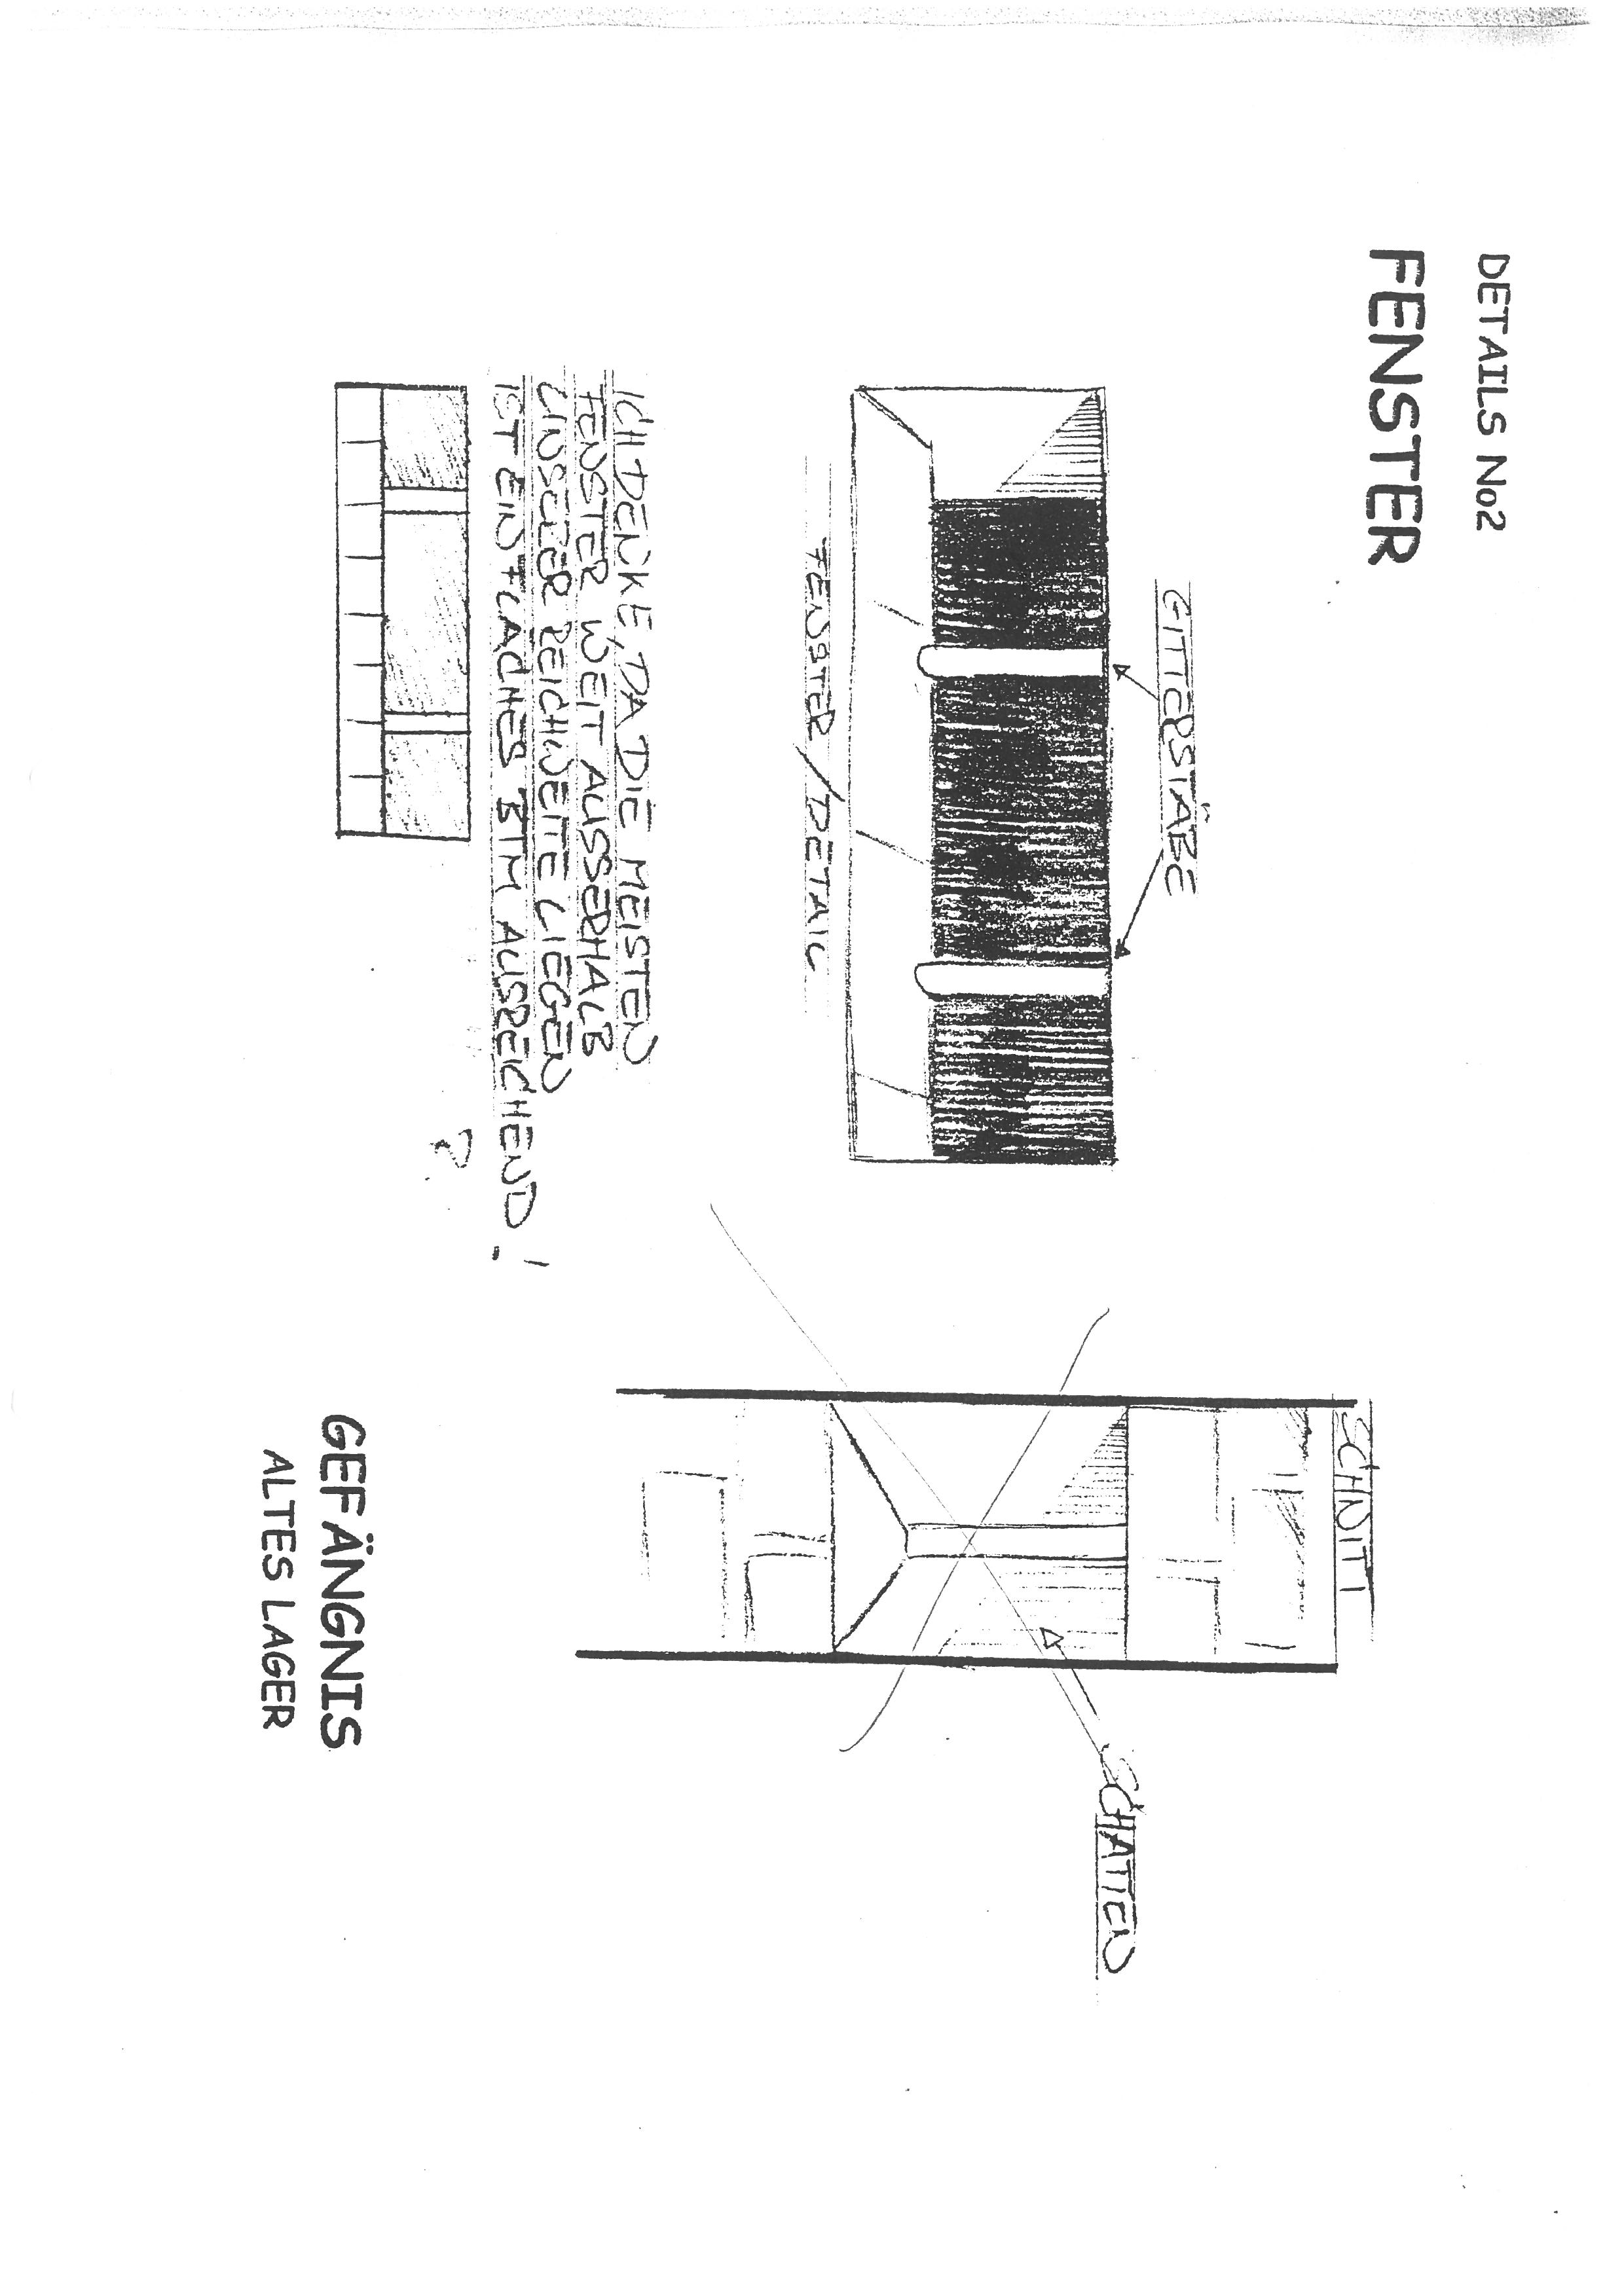 DETAILS No2
FENSTER
GITTERSTÄBE
FENSTER / DETAIL
ICH DENKE, DA DIE MEISTEN
FENSTER WEIT AUSSERHALB
UNSERER REICHWEITE LIEGEN
IST EIN FLACHES BTM AUSREICHEND!
?
SCHNITT
SCHATTEN
GEFÄNGNIS
ALTES LAGER